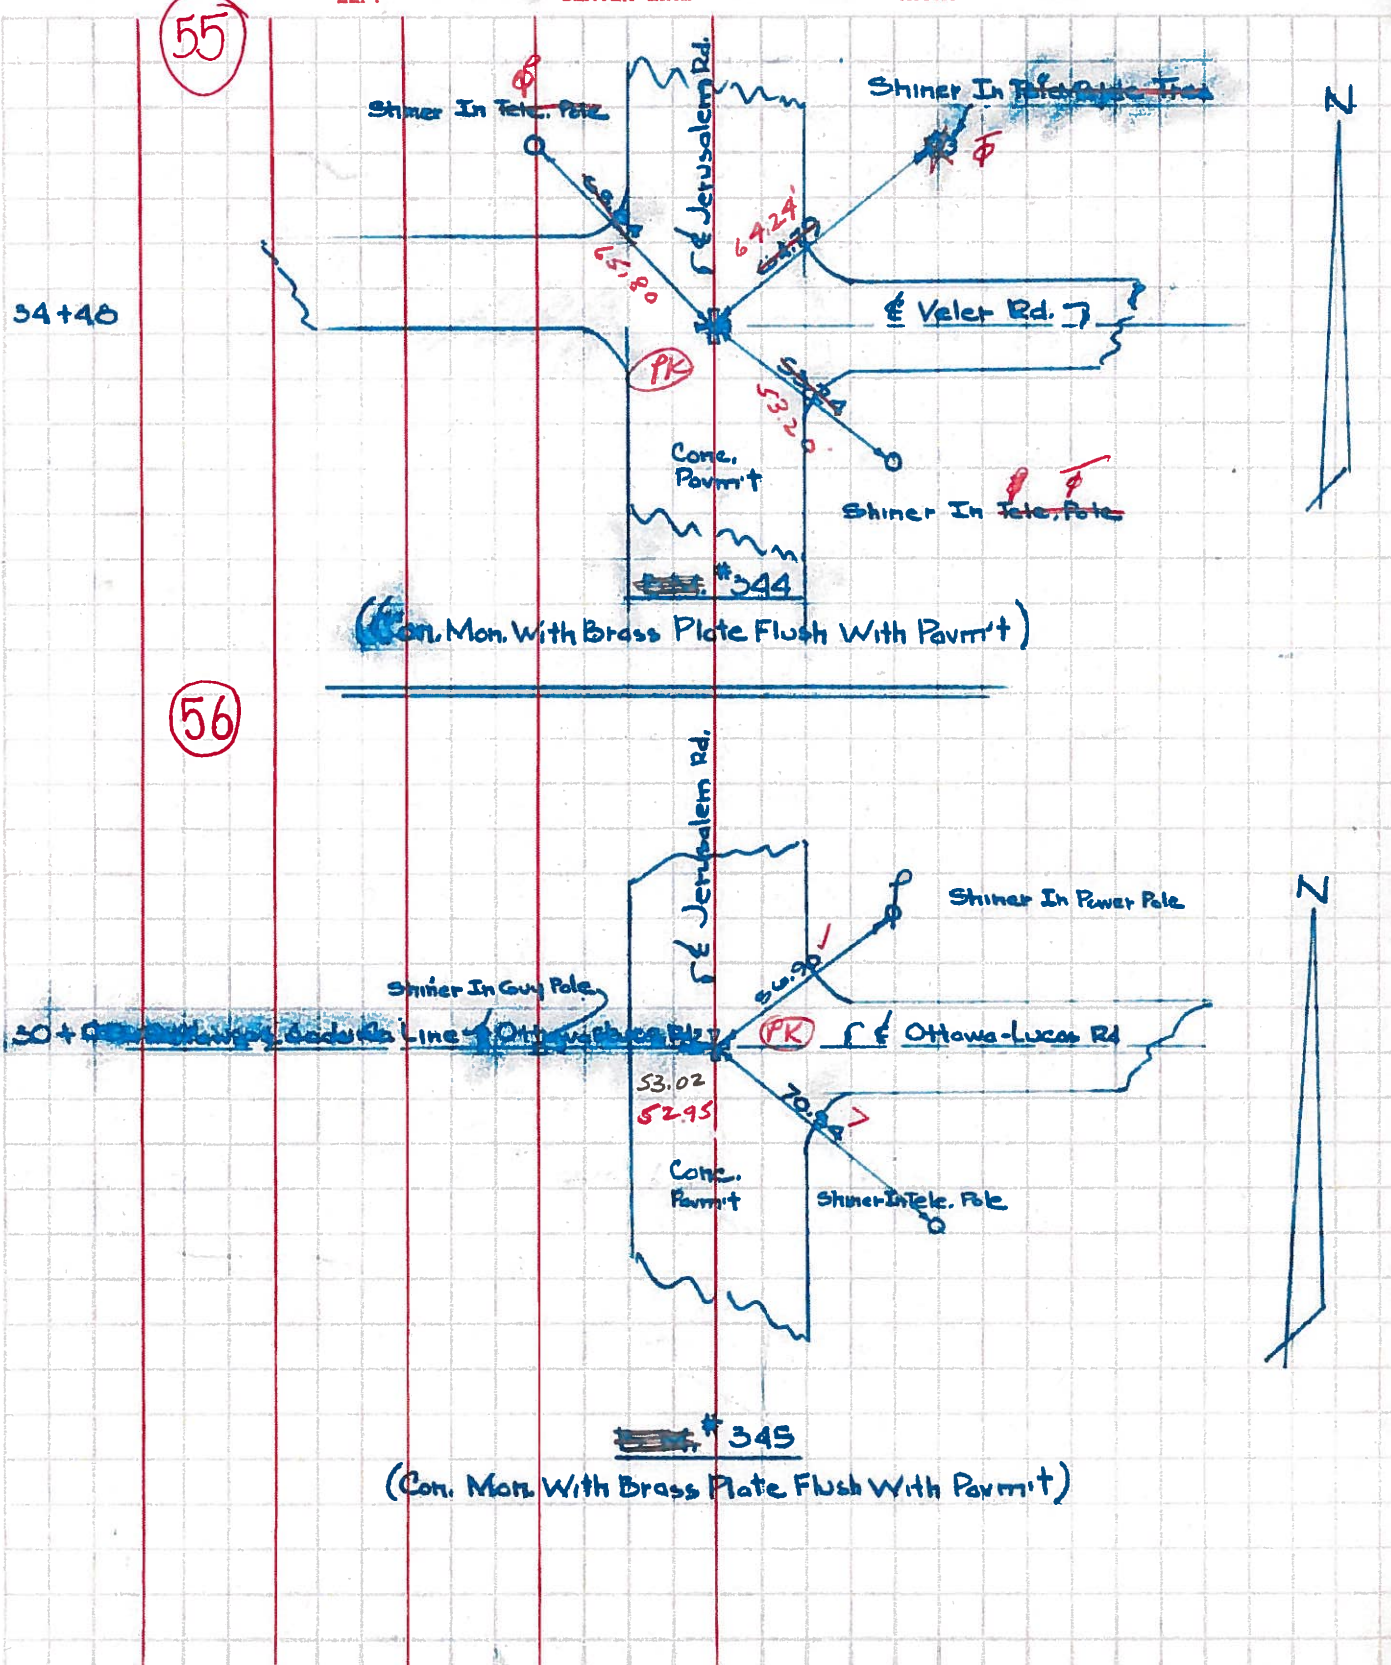 55
Shiner In Tele. Pole
℄ Jerusalem Rd.
Shiner In
N
64.24'
65.80
34+48
℄ Veler Rd.
PK
53.24
53.20
Conc.
Pavm't
Shiner In Tele. Pole
#344
(Con. Mon. With Brass Plate Flush With Pavm't)
56
℄ Jerusalem Rd.
N
Shiner In Power Pole
Shiner In Guy Pole
56.90
30+ Line
PK
℄ Ottawa-Lucas Rd
53.02
52.95
Conc.
Pavm't
Shiner In Tele. Pole
#345
(Con. Mon. With Brass Plate Flush With Pavm't)